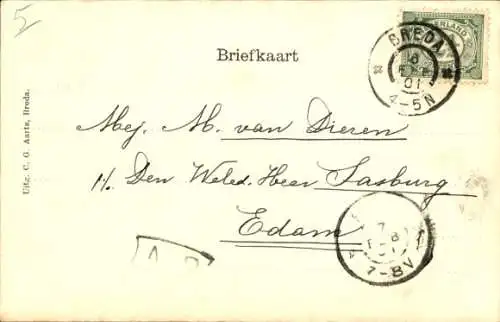 5
NEDERLAND
BREDA
6
FEB
01
4-5N
Briefkaart
Uitg. C. G. Aarts, Breda.
Mej. M. van Dieren
p. Den Weled. Heer Sasburg
Edam
7
FEB
01
7-8V